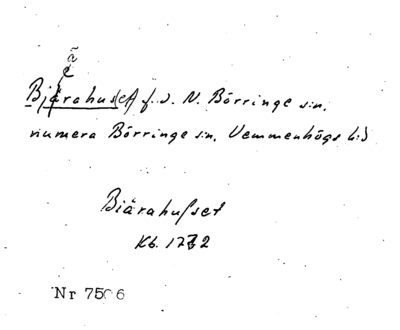 ä
Bjärahus(et) f.d. N. Börringe sn.
numera Börringe sn. Vemmenhögs hd
Biärahuſset
Kb. 1772
Nr 7506